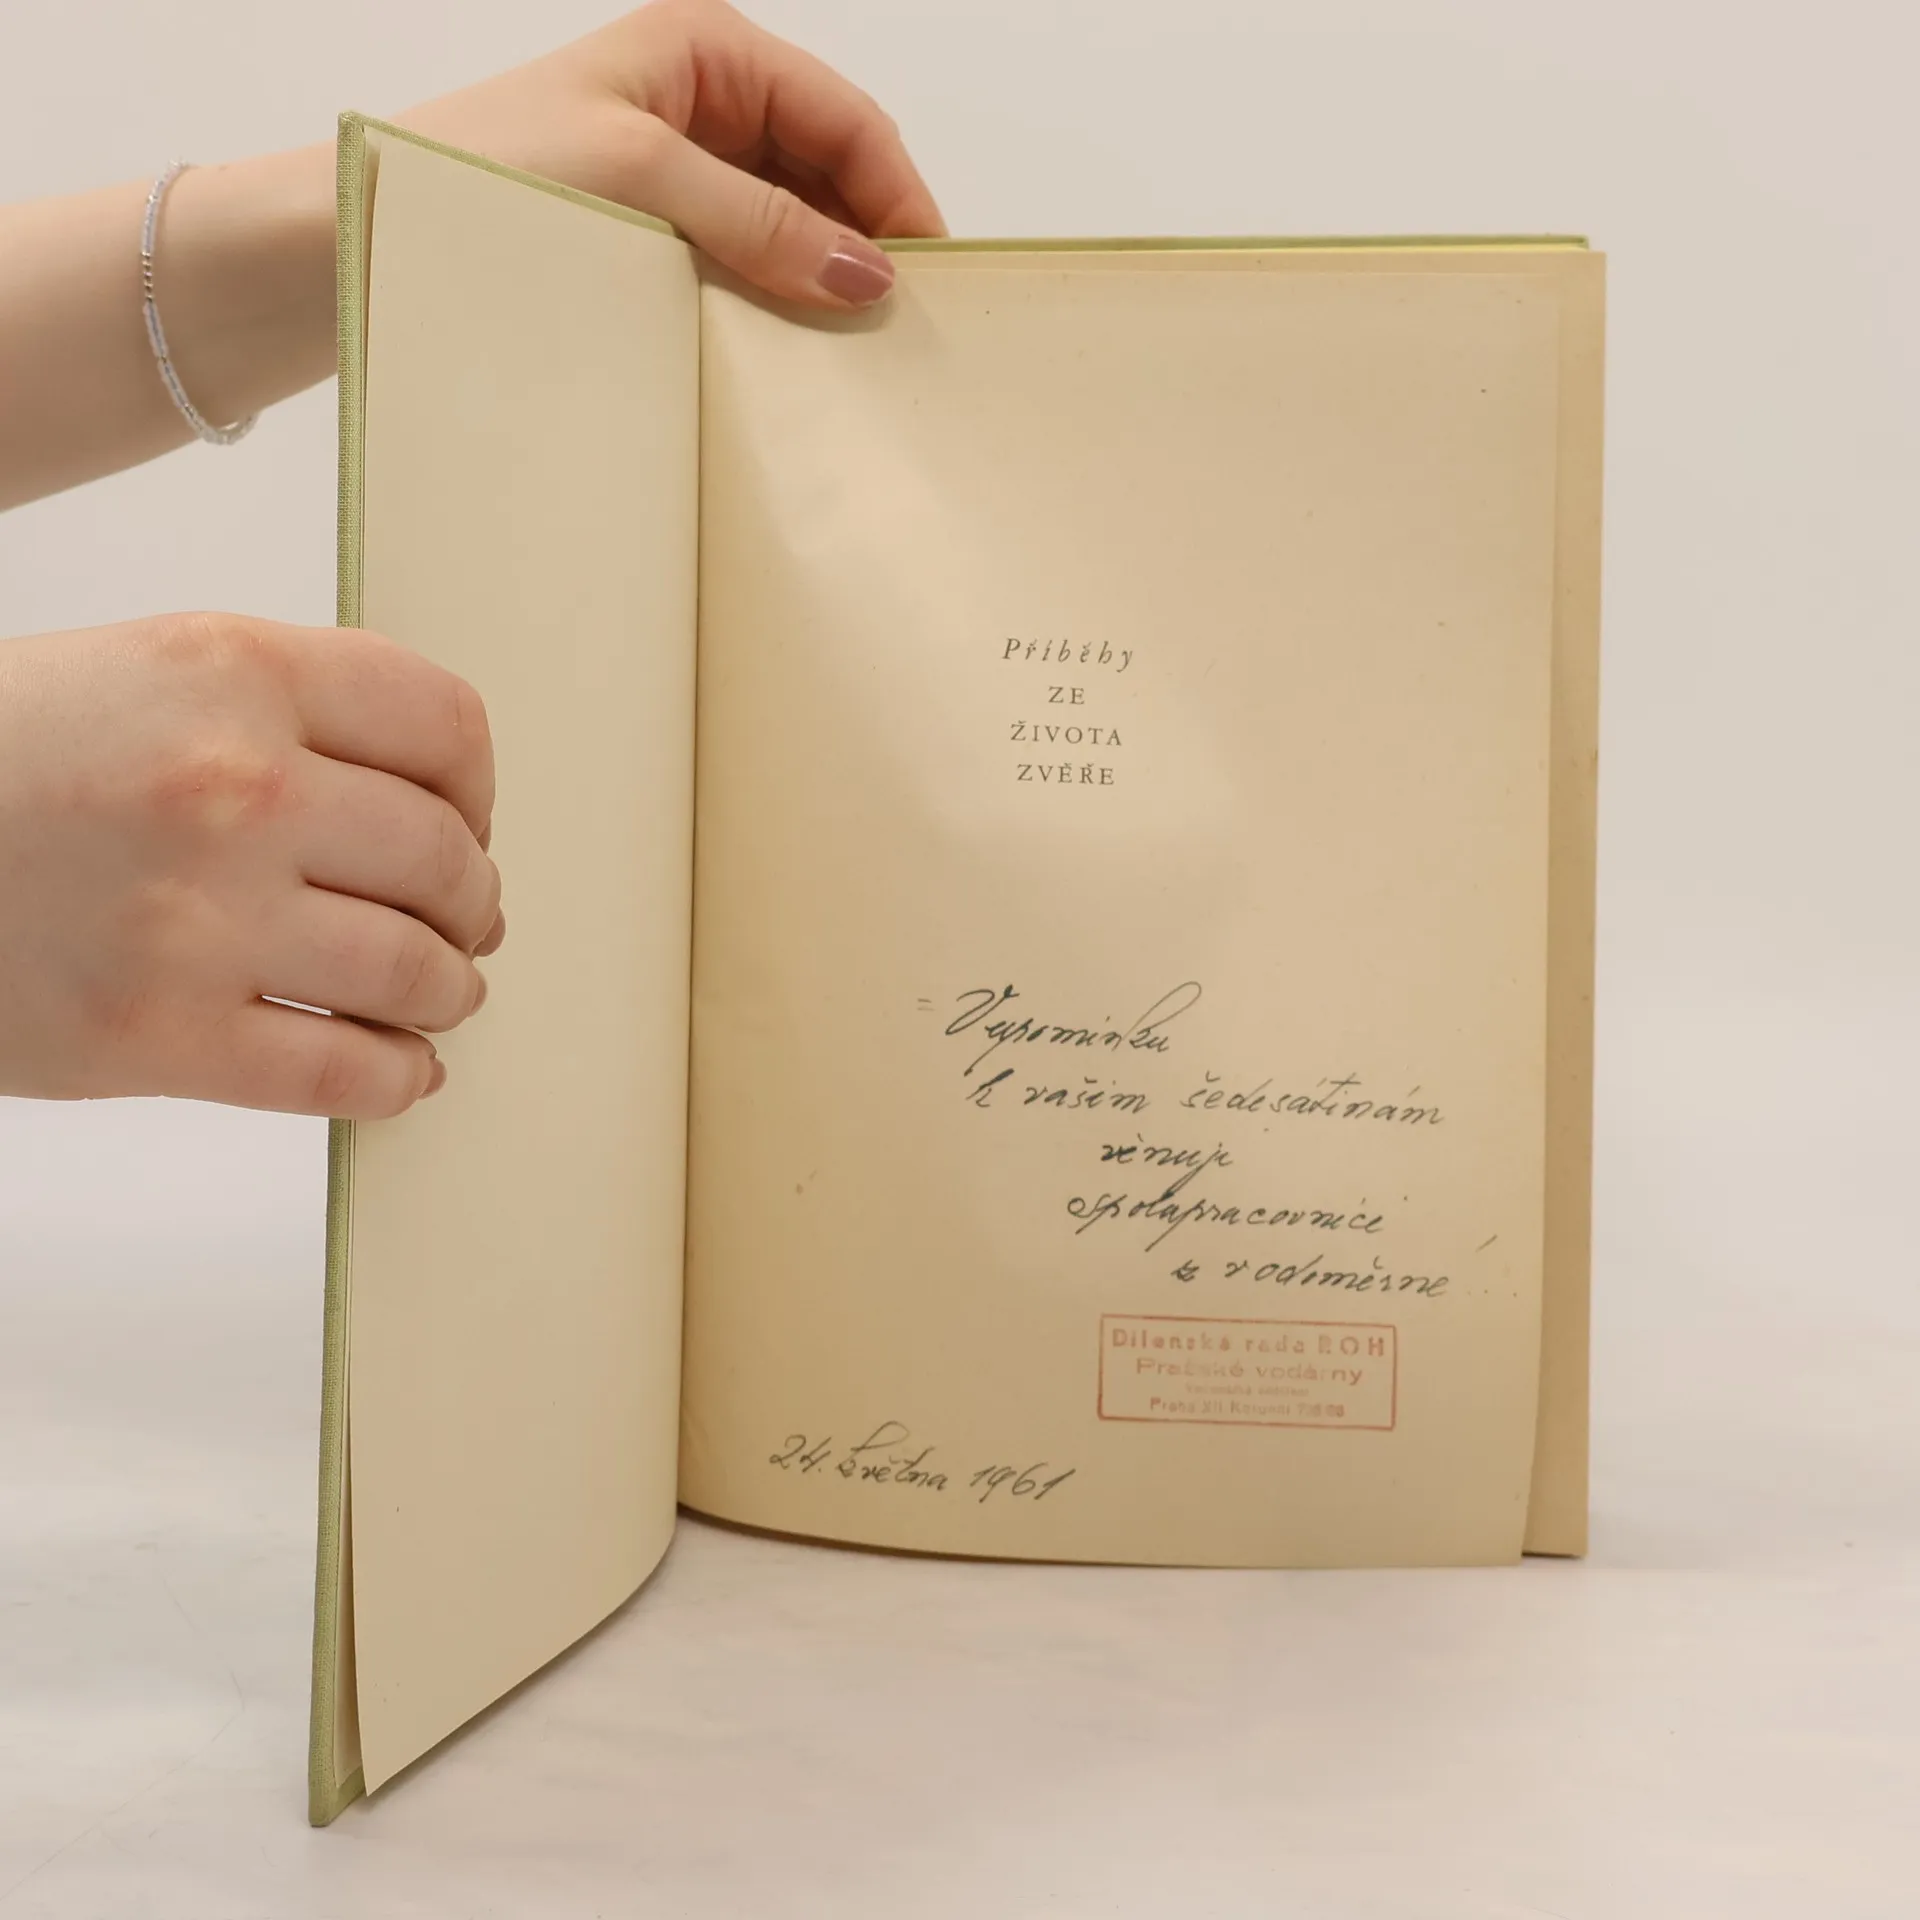 Příběhy
ZE
ŽIVOTA
ZVĚŘE
= Vzpomínku
k vašim šedesátinám
věnuji
spolupracovníci
z vodoměrne!..
Dílenská rada ROH
Pražské vodárny
Praha XII
24. května 1961